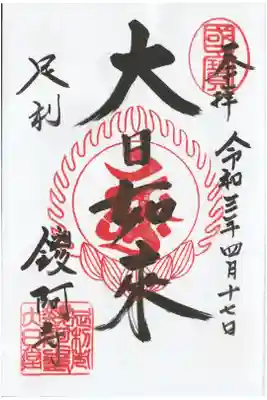 國寶
奉拝
令和三年四月十七日
大日如来
足利
鑁阿寺